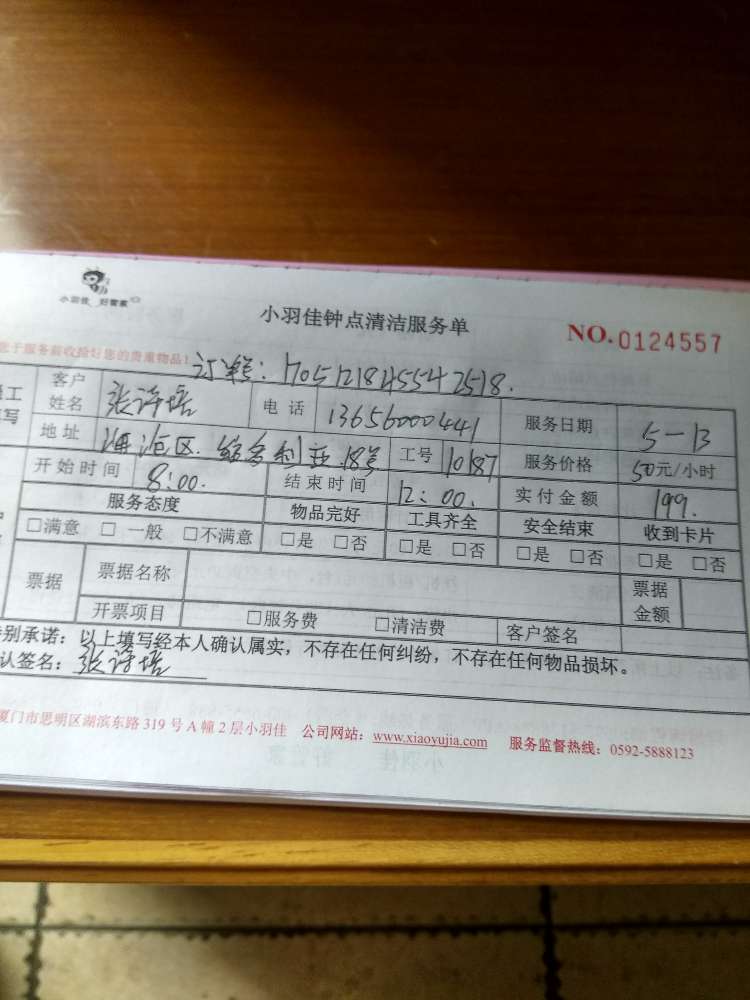 小羽佳 好管家
小羽佳钟点清洁服务单
NO.0124557
您于服务前收捡好您的贵重物品!
订单: 1705121845542518.
客户姓名 张诗培 电话 13656000441 服务日期 5-13
地址 海沧区. 18号 工号 10187 服务价格 50元/小时
开始时间 8:00. 结束时间 12:00. 实付金额 199.
服务态度 物品完好 工具齐全 安全结束 收到卡片
□满意 □一般 □不满意 □是 □否 □是 □否 □是 □否 □是 □否
票据 票据名称 票据金额
开票项目 □服务费 □清洁费 客户签名
别承诺:以上填写经本人确认属实,不存在任何纠纷,不存在任何物品损坏。
认签名:张诗培
厦门市思明区湖滨东路319号A幢2层小羽佳 公司网站:www.xiaoyujia.com 服务监督热线:0592-5888123